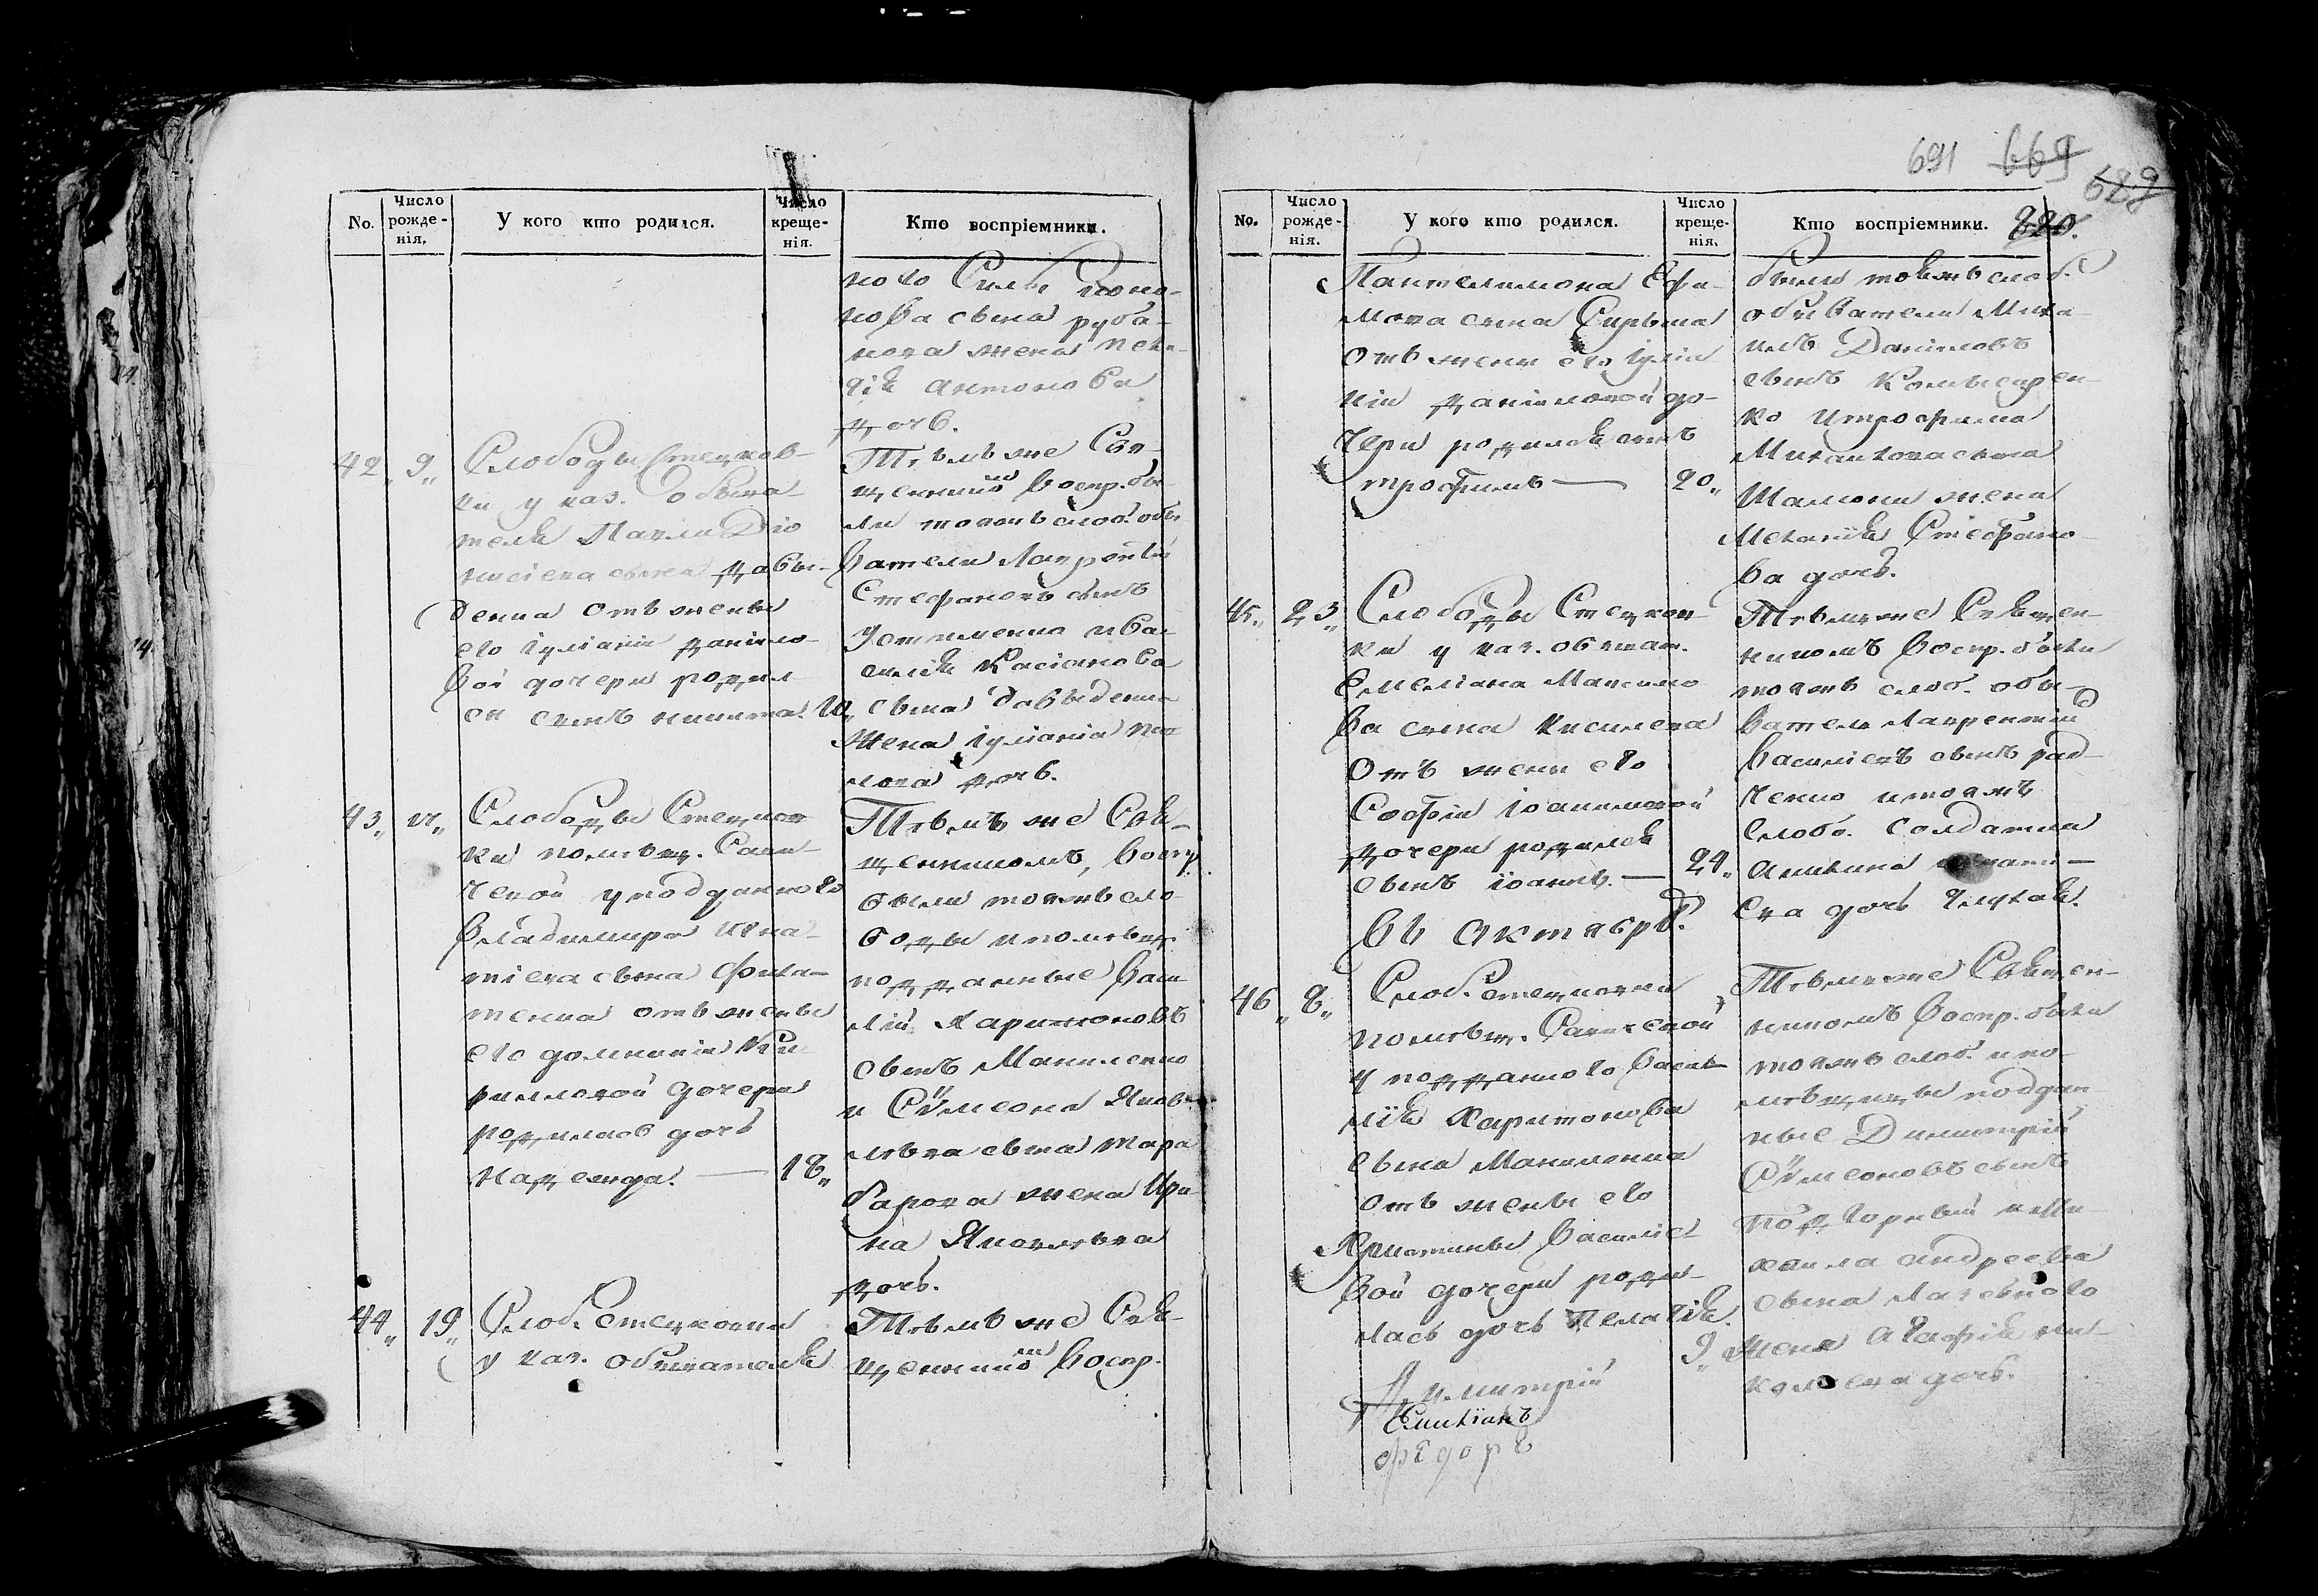 No.
Число рожде-нія.
У кого кто родился.
Число креще-нія.
Кто воспріемники.
ного Силы
нова сына руба-
нова жена пела-
гія антонова
дочь.
42„ 9„ Слободы Стецков-
ки у каз. обыва-
теля Павла Діо
нисіева сына давы-
денка отъ жены
его іуліаніи даніило-
вой дочери родил
ся сынъ никита. 10„
Тѣмъ же Свя-
щенник воспр. бы-
ли тояжъ слоб. обы
ватели Лаврентій
Стефановъ сынъ
Устименко и Ва-
силія Касіанова
сына давыденка
жена іуліанія пав
лова дочь.
43„ 17„ Слободы Стецков
ки помѣщ. Сави-
чевой у подданного
Владимира Игна-
тіева сына
тенка отъ жены
его домникіи Ки-
рилловой дочери
родилась дочь
Надежда. — 18„
Тѣмъ же Свя-
щенникомъ, воспр.
были тояжъ сло-
боды и помѣщ.
подданные Васи
лій Харитоновъ
сынъ Маниленко
и Сѵмеона Яков-
лѣва сына тара
барова жена Ири
на Яковлѣва
дочь.
44„ 19„ Слоб. Стецковки
у каз. обывателя
Тѣмъ же Свя-
щенник воспр.
691 669
689
220.
No.
Число рожде-нія.
У кого кто родился.
Число креще-нія.
Кто воспріемники.
Пантелимона Ефи-
мова сына Сирыка
отъ жены его іуліа
ніи даніиловой до-
чери родился сынъ
трофимъ — 20„
были тояжъ слоб.
обыватели Миха
илъ Даніиловъ
сынъ
ко и трофима
Михайлова сына
Шамони жена
Меланія Стефано
ва дочь.
45„ 23„ Слободы Стецков
ки у каз. обыват.
Емеліана Максимо
ва сына Киселева
отъ жены его
Софіи іоакимовой
дочери родился
сынъ іоаннъ. — 24„
Тѣмъ же Священ-
никомъ воспр. были
тояжъ слоб. обы-
ватель Лаврентій
Василіевъ сынъ рад-
ченко и тояжъ
слобо. солдатка
акилина
ева дочь
въ Октябрѣ.
46„ 8„ Слоб. Стецковки
помѣщ. Савичевой
у подданного Васи
лія Харитонова
сына Маниленка
отъ жены его
Христины Василіе
вой дочери роди-
лась дочь Пелагія. 9„
Тѣмъ же Священ-
никомъ воспр. были
тояжъ слоб. и по-
мѣщицы поддан
ные Димитрій
Сѵмеоновъ сынъ
подгорный и Ми-
хаила андреева
сына
жена Агафія ни
колаева дочь.
Димитрій
Федоръ